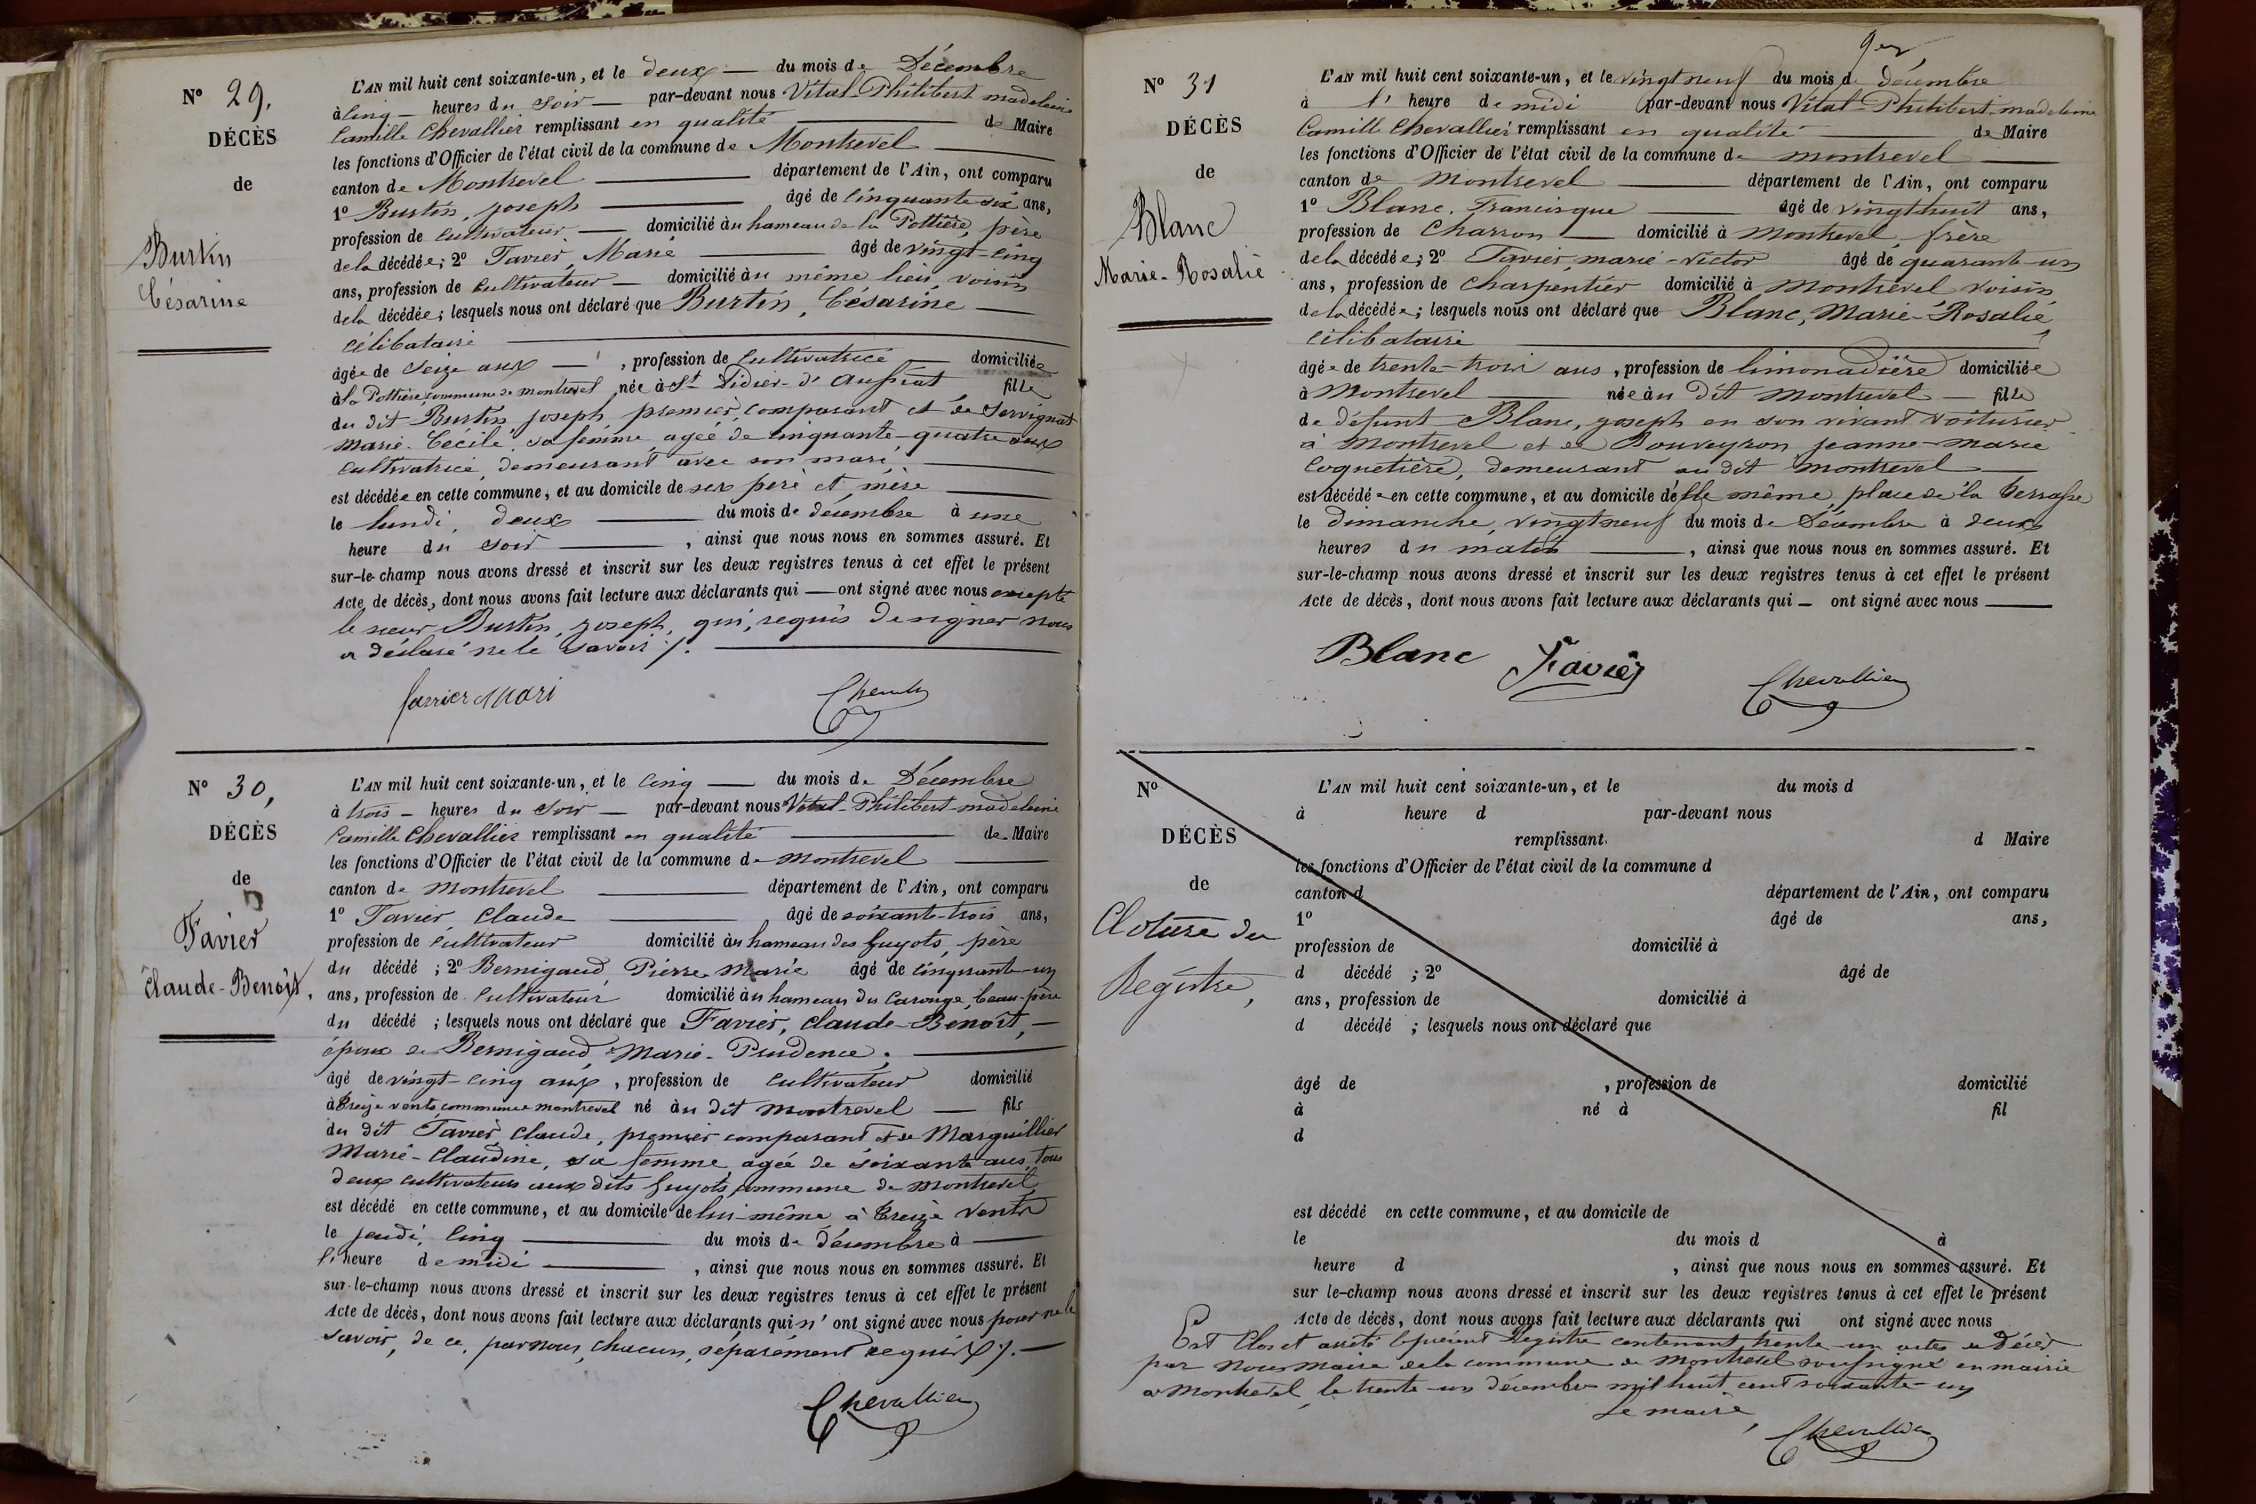 N° 29.
DÉCÈS
de
Burtin
Césarine
L'AN mil huit cent soixante-un, et le deux — du mois de Décembre
à cinq — heures du soir — par-devant nous Vital-Philibert madeleine
Camille Chevallier remplissant en qualité — de Maire
les fonctions d'Officier de l'état civil de la commune de Montrevel —
canton de Montrevel — département de l'Ain, ont comparu
1° Burtin, joseph — âgé de cinquante-six ans,
profession de cultivateur — domicilié au hameau de la Pottière, père
de la décédée; 2° Favier, Marie — âgé de vingt-cinq
ans, profession de cultivateur — domicilié au même lieu, voisin
de la décédée; lesquels nous ont déclaré que Burtin, Césarine —
célibataire —
âgée de seize ans —, profession de cultivatrice — domiciliée
à la Pottière, commune de montrevel, née à St Didier-d'Aussiat fille
du dit Burtin joseph, premier comparant et de Servignat
Marie-Cécile sa femme agée de cinquante-quatre ans
cultivatrice, demeurant avec son mari, —
est décédée en cette commune, et au domicile de ses père et mère —
le lundi, deux — du mois de décembre à une
heure du soir —, ainsi que nous nous en sommes assuré. Et
sur-le-champ nous avons dressé et inscrit sur les deux registres tenus à cet effet le présent
Acte de décès, dont nous avons fait lecture aux déclarants qui — ont signé avec nous excepté
le sieur Burtin, joseph, qui, requis de signer nous
a déclaré ne le savoir ./. —
favier Mari Chevallier
N° 30,
DÉCÈS
de
Favier
Claude-Benoît,
L'AN mil huit cent soixante-un, et le cinq — du mois de Décembre
à trois — heures du soir — par-devant nous Vital-Philibert-madeleine
Camille Chevallier remplissant en qualité — de Maire
les fonctions d'Officier de l'état civil de la commune de montrevel —
canton de montrevel — département de l'Ain, ont comparu
1° Favier, Claude — âgé de soixante-trois ans,
profession de cultivateur domicilié au hameau des Guyots, père
du décédé ; 2° Bernigaud, Pierre Marie âgé de cinquante-un
ans, profession de cultivateur domicilié au hameau du Carouge, beau-père
du décédé ; lesquels nous ont déclaré que Favier, Claude-Benoît, —
époux de Bernigaud, Marie-Prudence, —
âgé de vingt-cinq ans, profession de cultivateur domicilié
à Treize vents, commune de montrevel né au dit montrevel — fils
du dit Favier, Claude, premier comparant et de Marguillier
Marie-Claudine, sa femme agée de soixante ans, tous
deux cultivateurs aux dits Guyots, commune de montrevel
est décédé en cette commune, et au domicile de lui-même à Treize Vents
le jeudi, cinq — du mois de décembre à —
l'heure de midi —, ainsi que nous nous en sommes assuré. Et
sur-le-champ nous avons dressé et inscrit sur les deux registres tenus à cet effet le présent
Acte de décès, dont nous avons fait lecture aux déclarants qui n'ont signé avec nous pour ne le
savoir, de ce, par nous, chacun, séparément requis ./. —
Chevallier
N° 31
DÉCÈS
de
Blanc
Marie-Rosalie
L'AN mil huit cent soixante-un, et le vingt neuf du mois de décembre
à l' heure de midi par-devant nous Vital-Philibert-madeleine
Camille Chevallier remplissant en qualité — de Maire
les fonctions d'Officier de l'état civil de la commune de montrevel —
canton de montrevel — département de l'Ain, ont comparu
1° Blanc, Francisque — âgé de vingt huit ans,
profession de Charron — domicilié à montrevel, frère
de la décédée; 2° Favier, marie-victor âgé de quarante-un
ans, profession de charpentier domicilié à montrevel voisin
de la décédée; lesquels nous ont déclaré que Blanc, Marie-Rosalie,
célibataire —
âgée de trente-trois ans, profession de limonadière domiciliée
à Montrevel — née au dit montrevel — fille
de défunt Blanc, joseph en son vivant voiturier
à montrevel et de Bouveyron jeanne-marie
coquetière, demeurant au dit montrevel —
est décédée en cette commune, et au domicile d'elle même, place de la terrasse
le dimanche, vingt neuf du mois de décembre à deux
heures du matin —, ainsi que nous nous en sommes assuré. Et
sur-le-champ nous avons dressé et inscrit sur les deux registres tenus à cet effet le présent
Acte de décès, dont nous avons fait lecture aux déclarants qui — ont signé avec nous —
Blanc Favier Chevallier
N°
DÉCÈS
de
Cloture du
Régistre,
L'AN mil huit cent soixante-un, et le du mois d
à heure d par-devant nous
remplissant d Maire
les fonctions d'Officier de l'état civil de la commune d
canton d département de l'Ain, ont comparu
1° âgé de ans,
profession de domicilié à
d décédé ; 2° âgé de
ans, profession de domicilié à
d décédé ; lesquels nous ont déclaré que
âgé de , profession de domicilié
à né à fil
d
est décédé en cette commune, et au domicile de
le du mois d à
heure d , ainsi que nous nous en sommes assuré. Et
sur le-champ nous avons dressé et inscrit sur les deux registres tenus à cet effet le présent
Acte de décès, dont nous avons fait lecture aux déclarants qui ont signé avec nous
Est Clos et arrêté le présent Registre contenant trente-un actes de Décès
par nous maire de la commune de Montrevel soussigné en mairie
à Montrevel, le trente-un décembre mil huit cent soixante-un
Le maire,
Chevallier